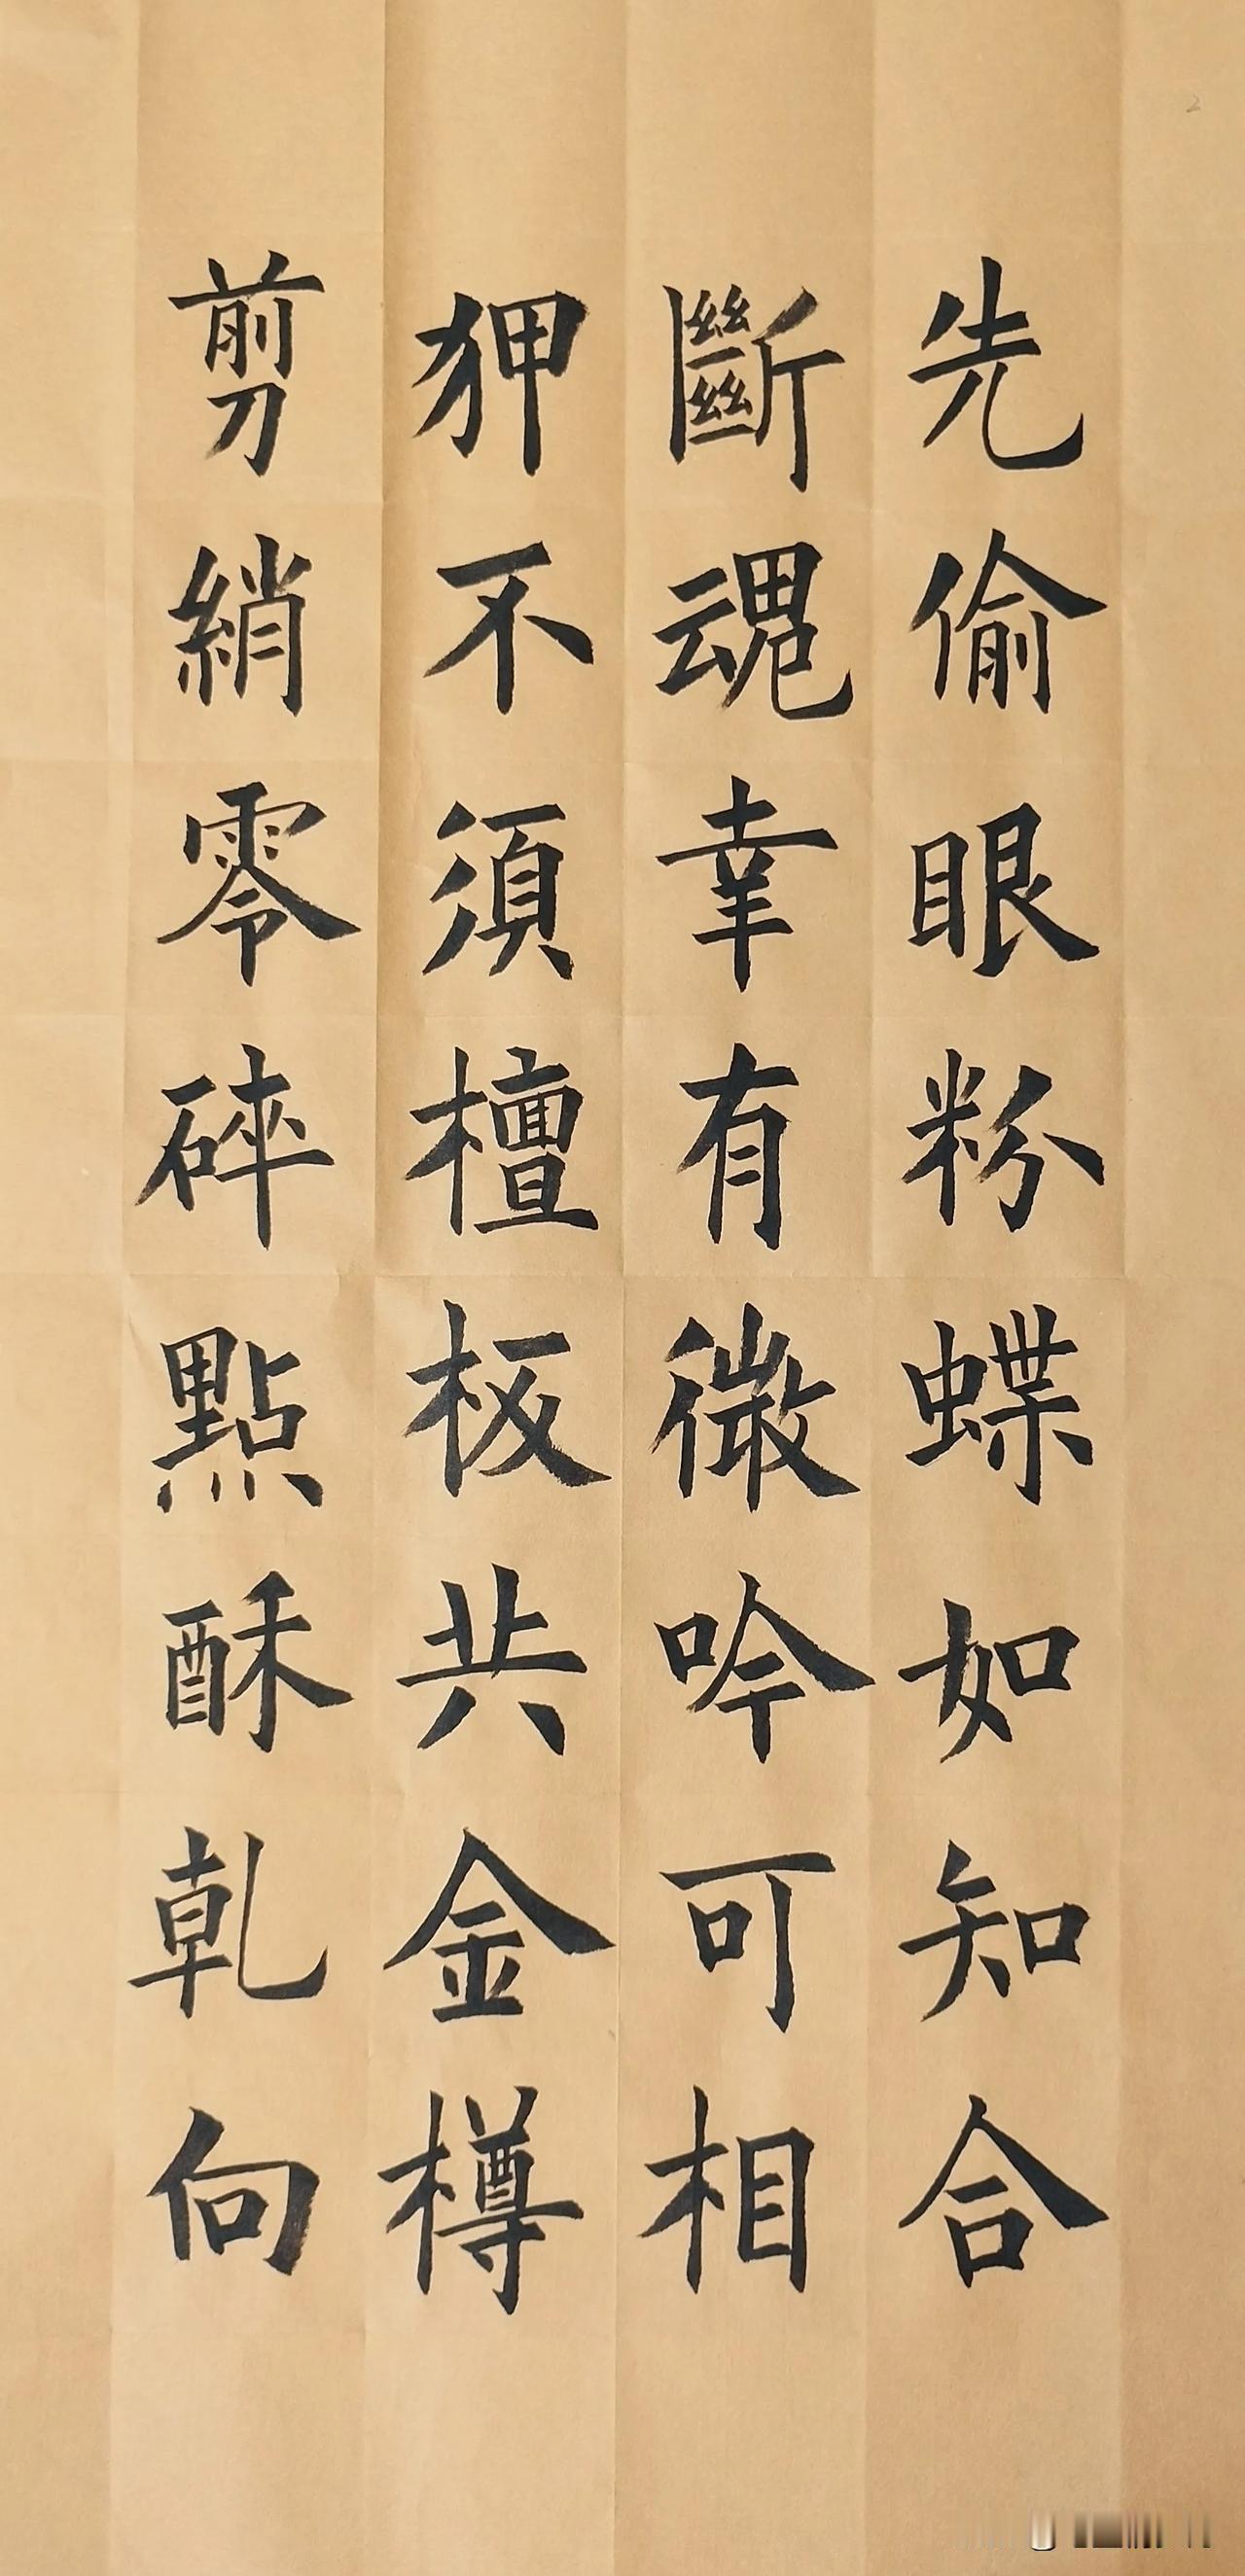 先偷眼粉蝶如知合
斷魂幸有微吟可相
狎不須檀板共金樽
剪綃零碎點酥乾向
2